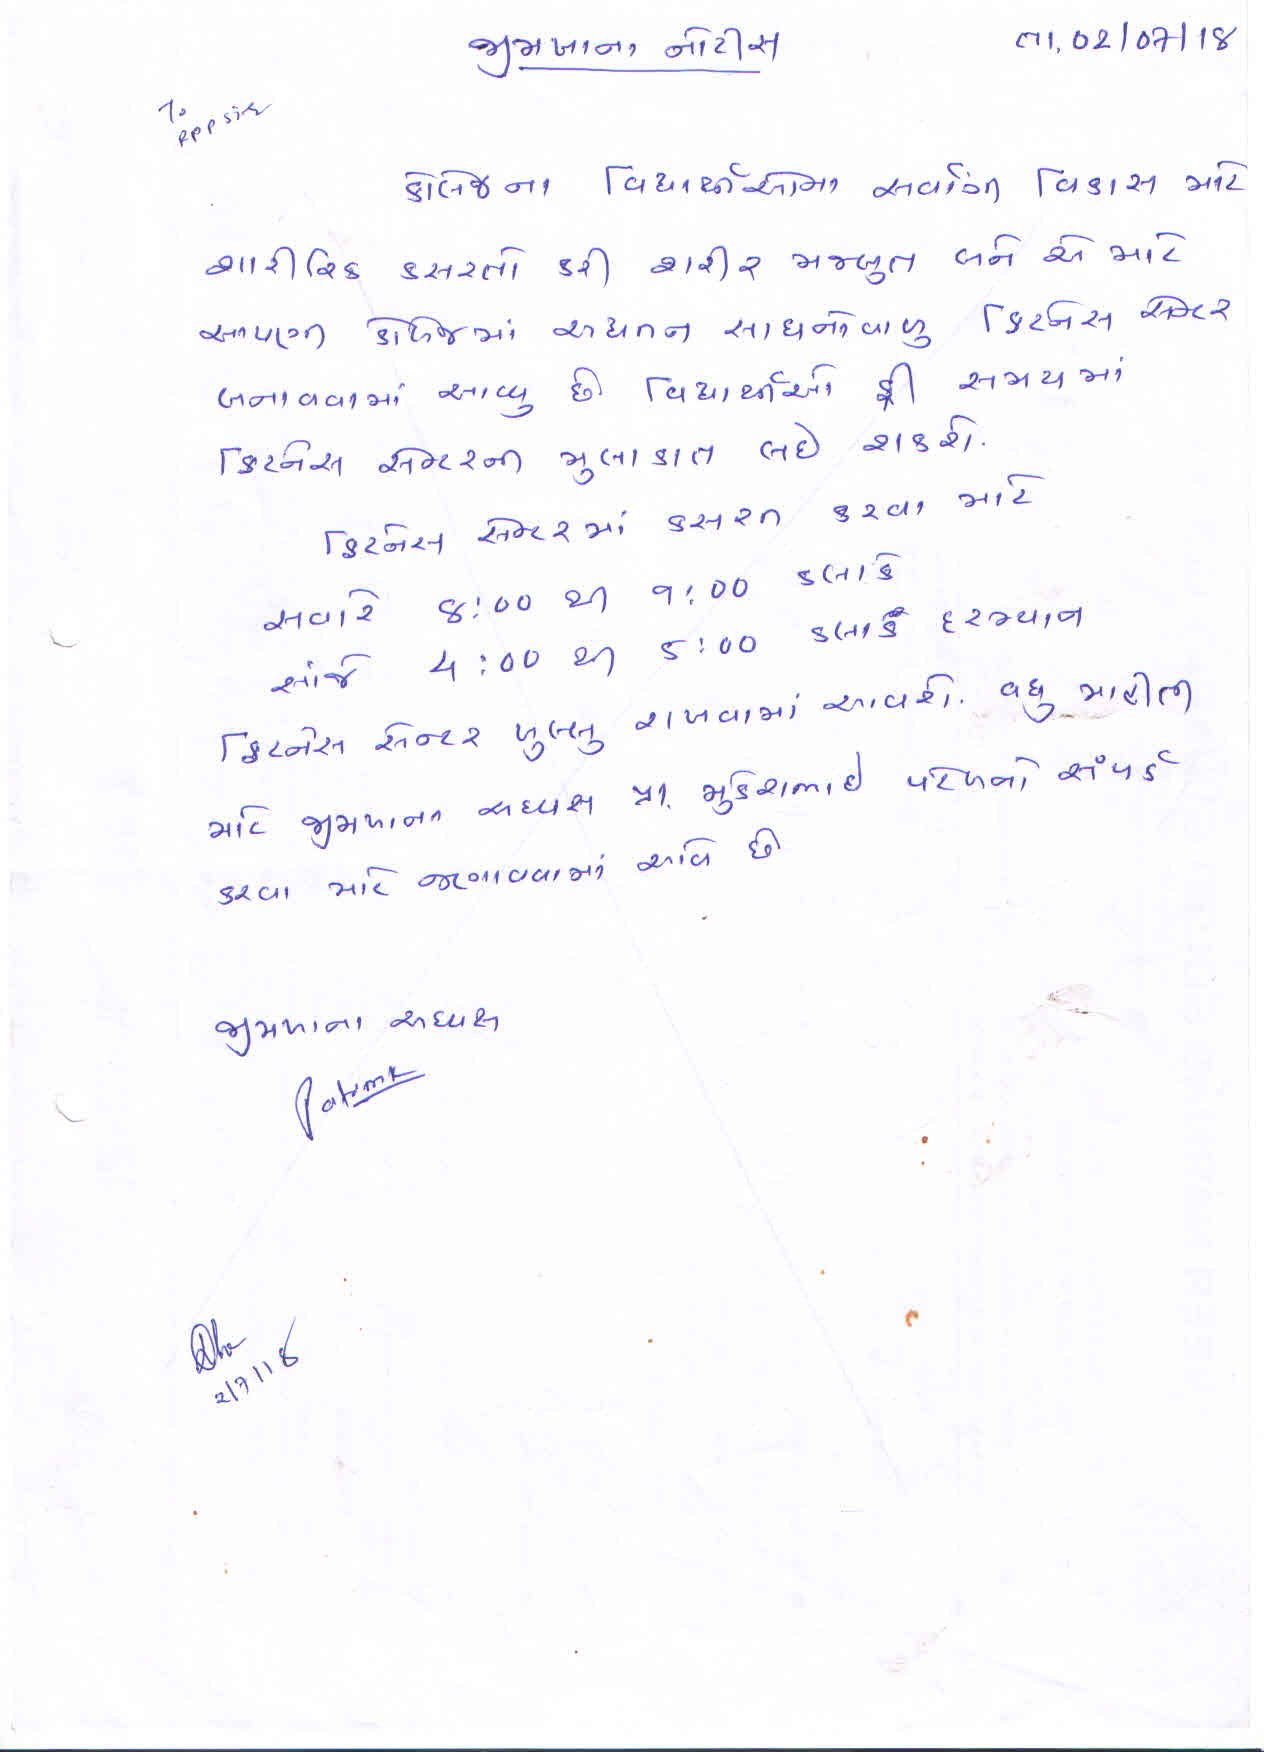 જીમખાના નોટીસ
તા. 02/07/18
To
કોલેજના વિદ્યાર્થીઓમા સર્વાંગી વિકાસ માટે
શારીરિક કસરતો કરી શરીર મજબુત બને એ માટે
આપણી કોલેજમાં અદ્યતન સાધનોવાળુ ફિટનેસ સેન્ટર
બનાવવામાં આવ્યુ છે વિદ્યાર્થીઓ ફ્રી સમયમાં
ફિટનેસ સેન્ટરની મુલાકાત લઇ શકશે.
ફિટનેસ સેન્ટરમાં કસરત કરવા માટે
સવારે 8:00 થી ૧:00 કલાકે
સાંજે 4:00 થી 5:00 કલાકે દરમ્યાન
ફિટનેસ સેન્ટર ખુલ્લુ રાખવામાં આવશે. વધુ માહીતી
માટે જીમખાના અધ્યક્ષ પ્રા. મુકેશભાઇ પટેલનો સંપર્ક
કરવા માટે જણાવવામાં આવે છે
જીમખાના અધ્યક્ષ
2/7/18